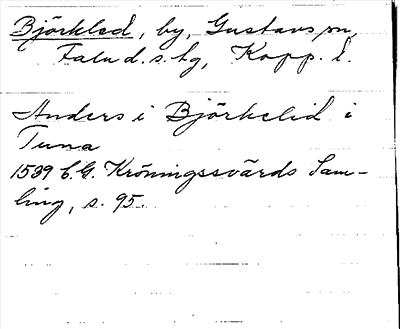 Björkled, by, Gustavs sn,
Falu d.s. hg, Kopp. l.
Anders i Björkelid i
Tuna
1539 C.G. Kröningssvärds Sam-
ling, s. 95.